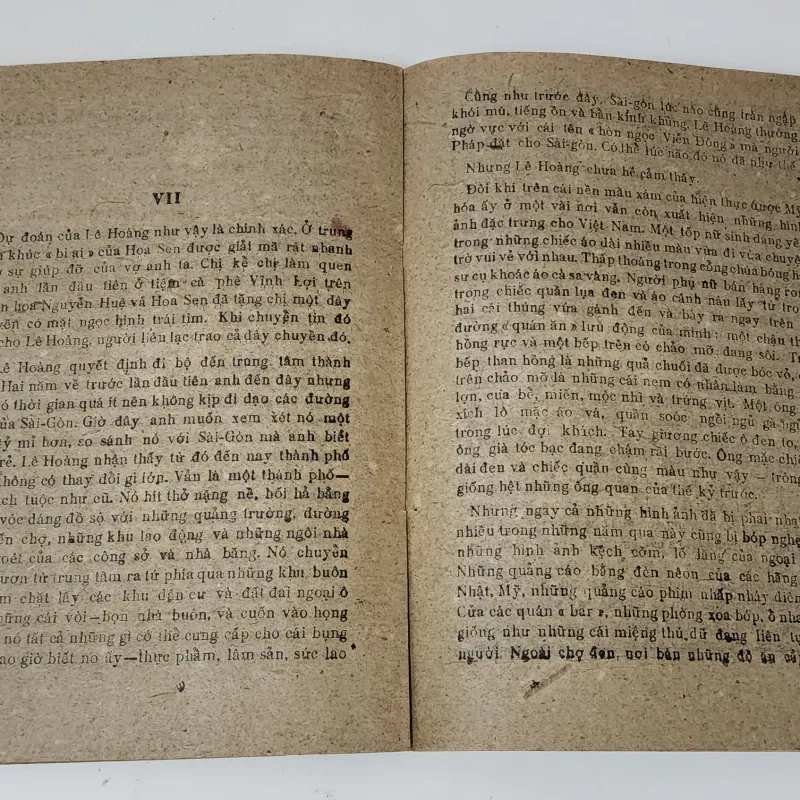 VII
Dự đoán của Lê Hoàng như vậy là chính xác. Ở trung
khúc « bi ai » của Hoa Sen được giải mã rất nhanh
sự giúp đỡ của vợ anh ta. Chị kể chị làm quen
anh lần đầu tiên ở tiệm cà phê Vĩnh Lợi trên
hoa Nguyễn Huệ và Hoa Sen đã tặng chị một dây
có mặt ngọc hình trái tim. Khi chuyển tin đó
cho Lê Hoàng, người liên lạc trao cả dây chuyền đó.
Lê Hoàng quyết định đi bộ đến trung tâm thành
Hai năm về trước lần đầu tiên anh đến đây nhưng
thời gian quá ít nên không kịp đi dạo các đường
của Sài-Gòn. Giờ đây anh muốn xem xét nó một
tỷ mỉ hơn, so sánh nó với Sài-Gòn mà anh biết
Lê Hoàng nhận thấy từ đó đến nay thành phố
không có thay đổi gì lớp. Vẫn là một thành phố—
tuộc như cũ. Nó hít thở nặng nề, bối hả bằng
vóc dáng đồ sộ với những quảng trường, đường
chợ, những khu lao động và những ngôi nhà
của các công sở và nhà băng. Nó chuyển
từ trung tâm ra tứ phía qua những khu buôn
chặt lấy các khu dân cư và đất đai ngoại ô
cái vòi—bọn nhà buôn, và cuốn vào họng
nó tất cả những gì có thể cung cấp cho cái bụng
giờ biết no ấy—thực phẩm, lâm sản, sức lao
Cũng như trước đây, Sài-gòn lúc nào cũng tràn ngập
khói mù, tiếng ồn và bần kinh khủng. Lê Hoàng thường
ngờ vực với cái tên « hòn ngọc Viễn Đông » mà người
Pháp đặt cho Sài-gòn. Có thể lúc nào đó nó đã như thế
Nhưng Lê Hoàng chưa hề cảm thấy.
Đôi khi trên cái nền màu xám của hiện thực được Mỹ
hóa ấy ở một vài nơi vẫn còn xuất hiện những hình
ảnh đặc trưng cho Việt Nam. Một tốp nữ sinh dáng yê
trong những chiếc áo dài nhiều màu vừa đi vừa chuyệ
trò vui vẻ với nhau. Thấp thoáng trong cổng chùa bóng
sư cụ khoác áo cà sa vàng. Người phụ nữ bán hàng ron
trong chiếc quần lụa đen và áo cánh nâu lấy từ tro
hai cái thúng vừa gánh đến và bầy ra ngay trên
đường « quán ăn » lưu động của mình: một chậu th
hồng rực và một bếp trên có chảo mỡ đang sôi. T
bếp than hồng là những quả chuối đã được bóc vỏ,
trên chảo mỡ là những cái nem có nhân làm bằng
lợn, cua bể, miến, mộc nhĩ và trứng vịt. Một ông
xích lô mặc áo vá, quần soóc ngồi ngủ gà ngủ
trong lúc đợi khách. Tay giương chiếc ô đen to,
ông già tóc bạc đang chậm rãi bước. Ông mặc chiế
dài đen và chiếc quần cùng màu như vậy — trông
giống hệt những ông quan của thế kỷ trước.
Nhưng ngay cả những hình ảnh đã bị phai nhạ
nhiều trong những năm qua này cũng bị bóp nghẹ
những hình ảnh kệch cỡm, lố lăng của ngoại
Những quảng cáo bằng đèn nêon của các hãng
Nhật, Mỹ, những quảng cáo phim nhấp nháy điên
Cửa các quán « bar », những phòng xoa bóp, ổ nhệ
giống như những cái miệng thú dữ đang liên tụ
người. Ngoài chợ đen, nơi bán những đồ ăn cắ